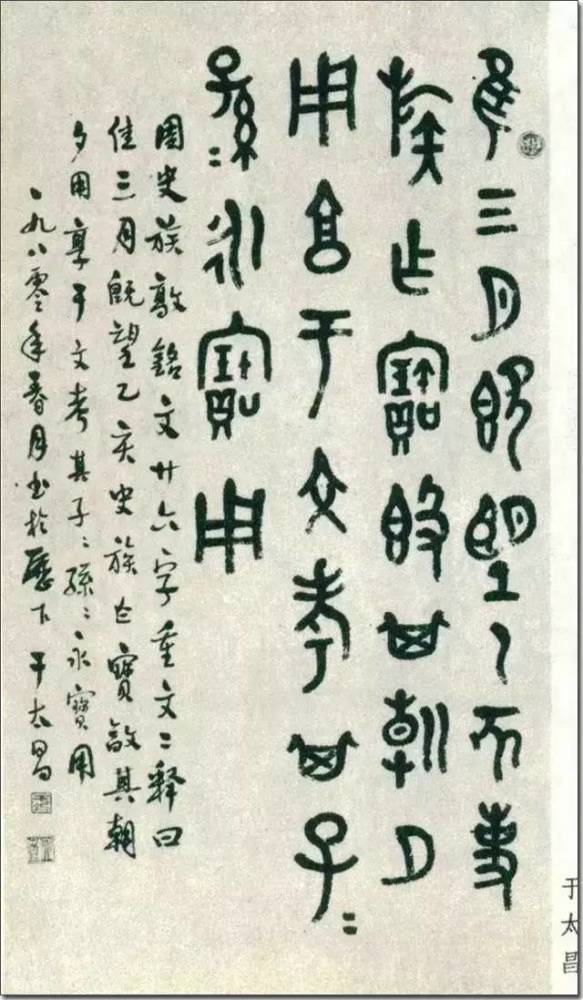 隹三月既望乙亥史
族乍寶𣪘其朝夕
用享于文考其子=
孫=永寶用
周史族敦銘文廿六字重文二釋曰
隹三月既望乙亥史族乍寶𣪘其朝
夕用享于文考其子=孫=永寶用
一九八零年春月书於歷下于太昌
于太昌